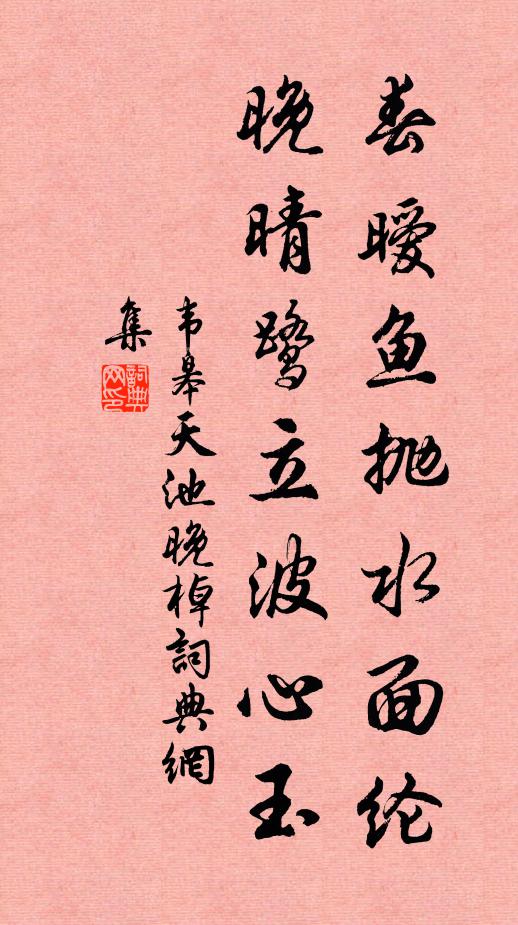 春暧鱼抛水面纶
晚晴鹭立波心玉
韦皋天池晚棹詞典網
集
詞典网印